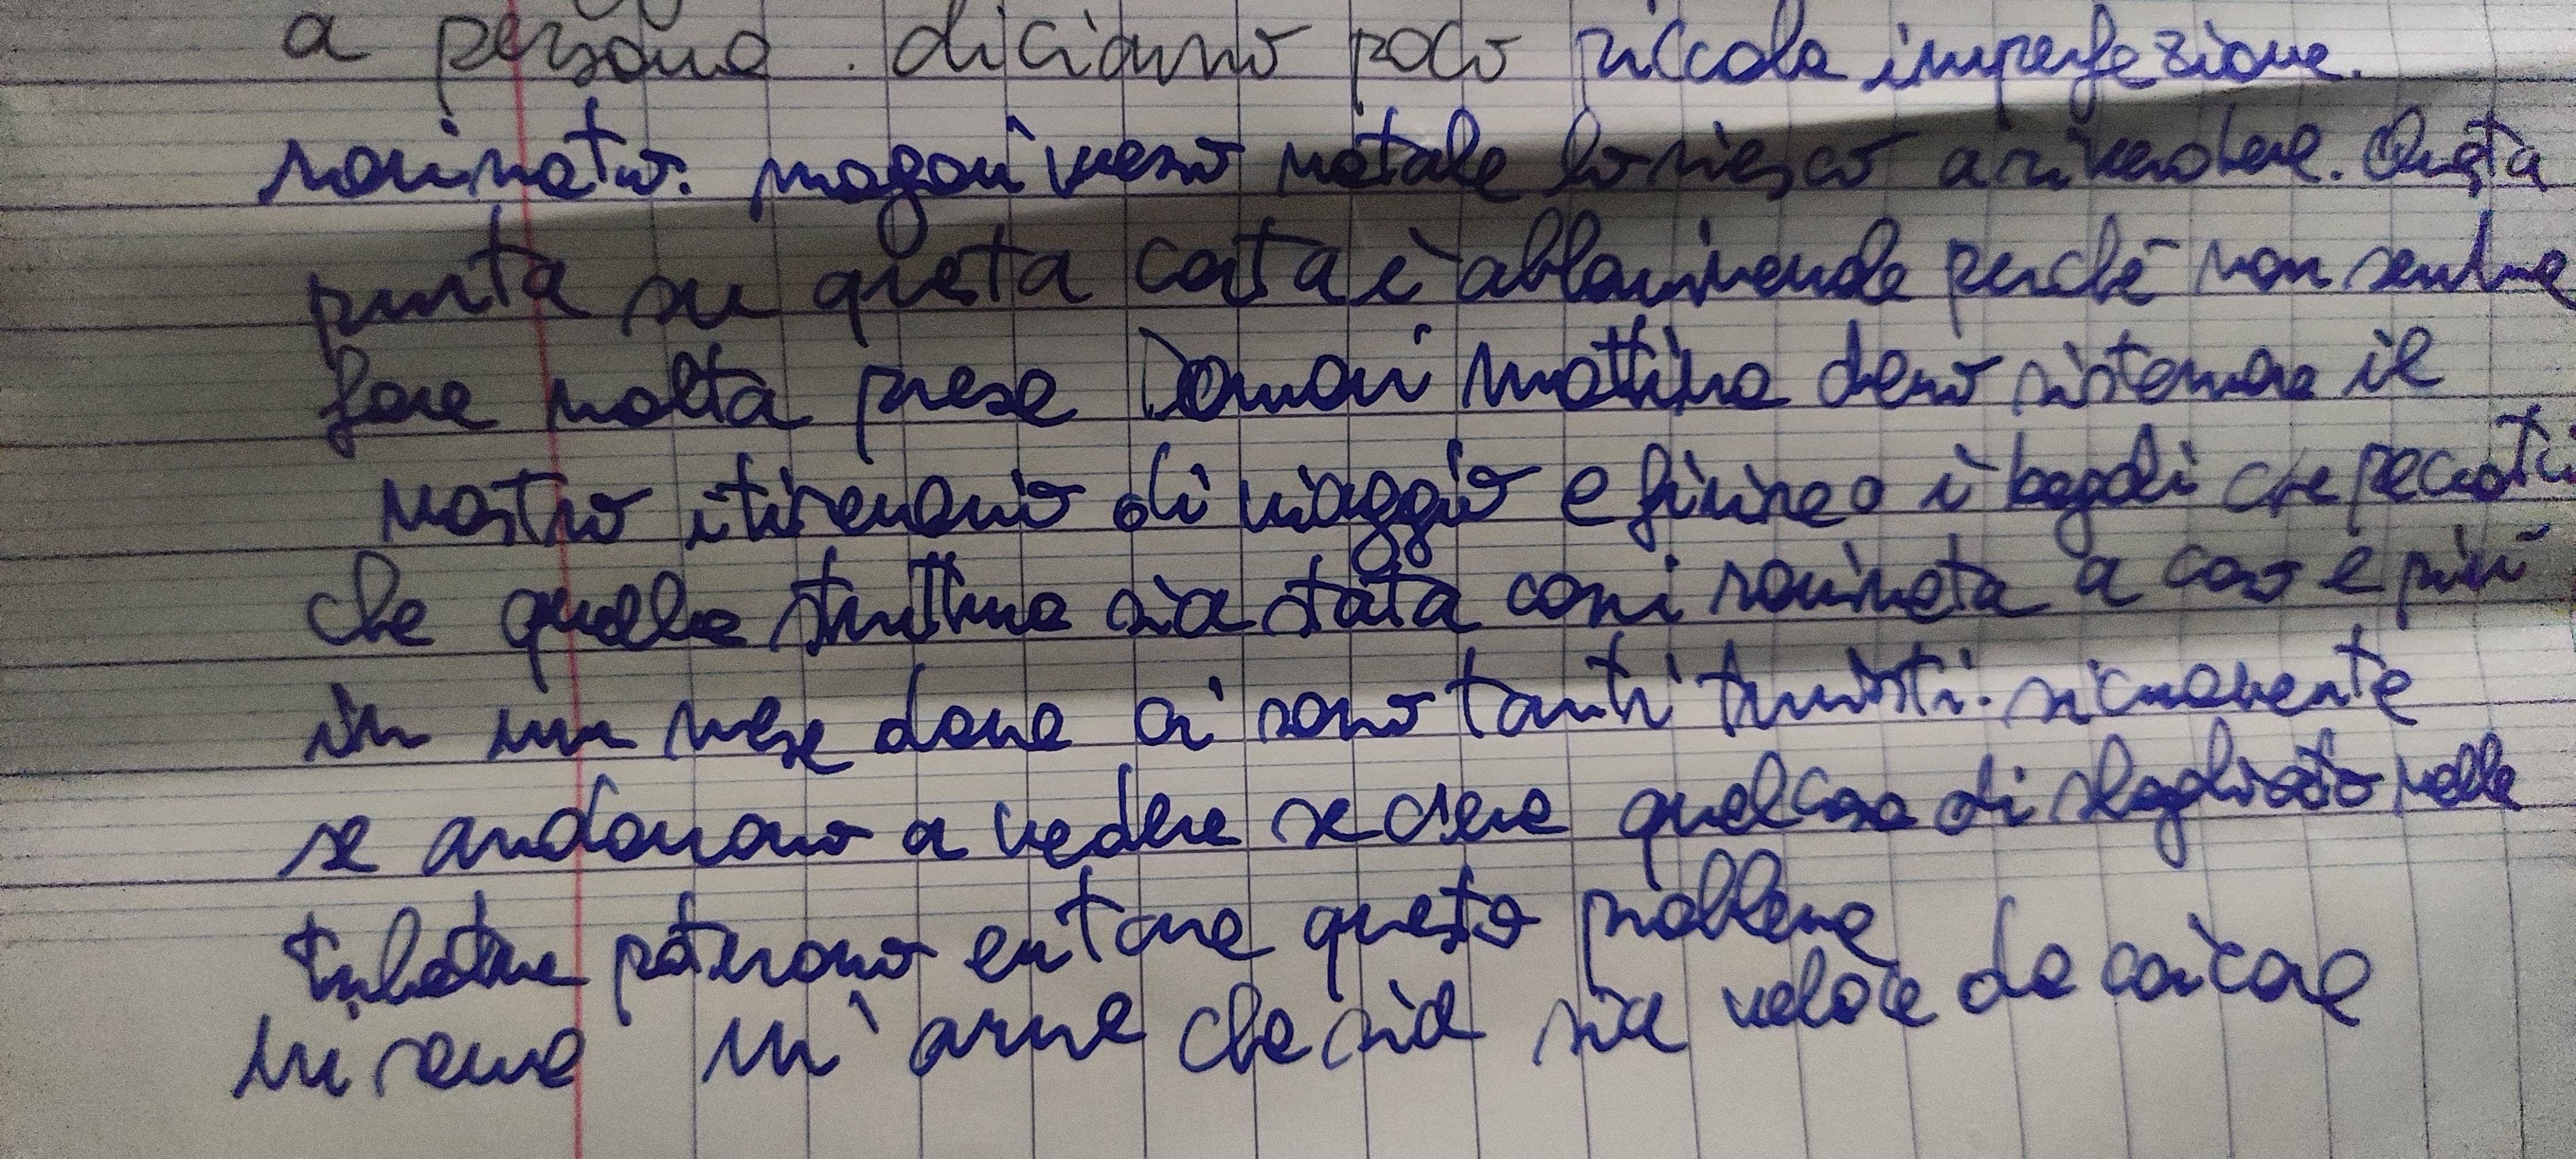 a persona. diciamo poco piccola imperfezione.
rovinato. magari verso natale lo riesco a rivendere. Questa
punta su questa carta è abbominevole perché non sembra
fare molta presa Domani mattina devo sistemare il
nostro itinerario di viaggio e finire i bagagli che peccato
che quella struttura sia stata così rovinata a caso e più
in un mese dove ci sono tanti turisti. sicuramente
se andavano a vedere se c'era qualcosa di sbagliato nelle
tubature potevano evitare questo problema
mi serve un'arma che sia sia veloce da caricare